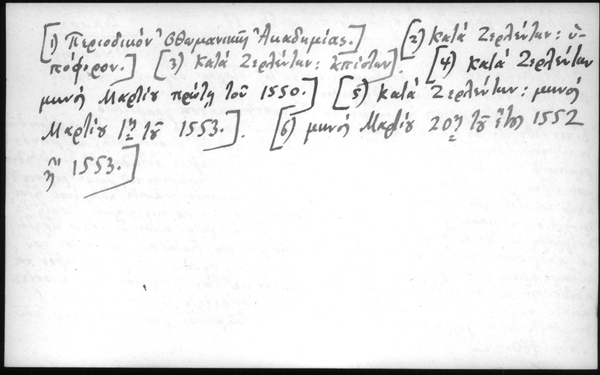 [1) Περιοδικόν Ὀθωμανικῆς Ἀκαδημίας.] [2) Κατά Ζερλέντην: ὑ-
πόφορον.] [3) Κατά Ζερλέντην: ]. [4) Κατά Ζερλέντην
μηνός Μαρτίου πρώτῃ τοῦ 1550.] [5) Κατά Ζερλέντην: μηνός
Μαρτίου 1ῃ τοῦ 1553.]. [6) μηνός Μαρτίου 20ῃ τοῦ ἔτους 1552
ἤ 1553.]